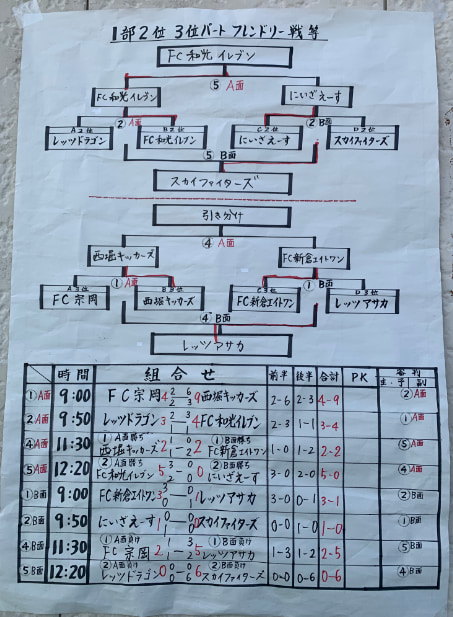 1部2位 3位パート フレンドリー戦等
FC和光イレブン
⑤ A面
FC和光イレブン にいざえーす
② A面 ② B面
A2位 B2位 C2位 D2位
レッツドラゴン FC和光イレブン にいざえーす スカイファイターズ
⑤ B面
スカイファイターズ
引き分け
④ A面
西堀キッカーズ FC新倉エイトワン
① A面 ① B面
A3位 B3位 C3位 D3位
FC宗岡 西堀キッカーズ FC新倉エイトワン レッツアサカ
④ B面
レッツアサカ
時間 組合せ 前半 後半 合計 PK 審判
主・予 副
①A面 9:00 FC宗岡 4 2-6 2-3 9 西堀キッカーズ 2-6 2-3 4-9 ②A面
②A面 9:50 レッツドラゴン 3 2-3 1-1 4 FC和光イレブン 2-3 1-1 3-4 ①A面
④A面 11:30 ①A面勝ち 西堀キッカーズ 2 1-0 1-2 2 ①B面勝ち FC新倉エイトワン 1-0 1-2 2-2 ⑤A面
⑤A面 12:20 ②A面勝ち FC和光イレブン 5 3-0 2-0 0 ②B面勝ち にいざえーす 3-0 2-0 5-0 ④A面
①B面 9:00 FC新倉エイトワン 3 3-0 0-1 1 レッツアサカ 3-0 0-1 3-1 ②B面
②B面 9:50 にいざえーす 1 0-0 1-0 0 スカイファイターズ 0-0 1-0 1-0 ①B面
④B面 11:30 ①A面負け FC宗岡 2 1-3 1-2 5 ①B面負け レッツアサカ 1-3 1-2 2-5 ⑤B面
⑤B面 12:20 ②A面負け レッツドラゴン 0 0-0 0-6 6 ②B面負け スカイファイターズ 0-0 0-6 0-6 ④B面